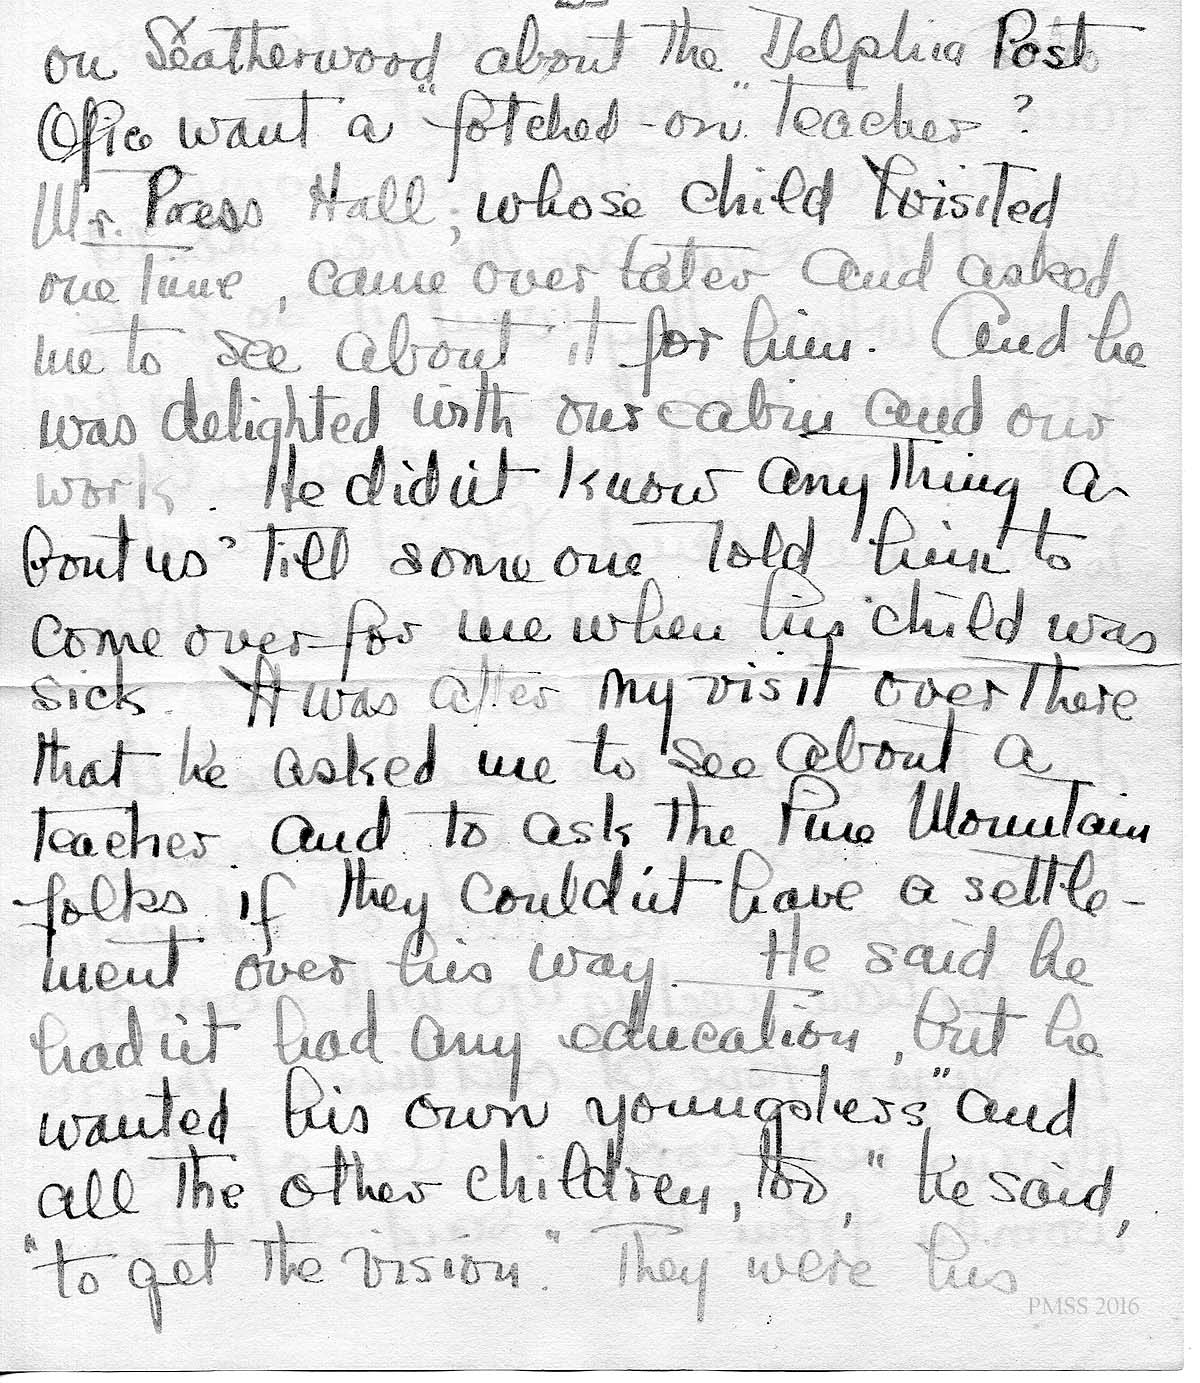 on Leatherwood about the Delphia Post
Office want a "fotched-on" teacher?
Mr. Press Hall, whose child I visited
one time, came over later and asked
me to see about it for him. And he
was delighted with our cabin and our
work. He didn't know anything a-
bout us 'till some one told him to
come over for me when his child was
sick. It was after my visit over there
that he asked me to see about a
teacher and to ask the Pine Mountain
folks if they couldn't have a settle-
ment over his way. He said he
hadn't had any education, but he
wanted his own youngsters "and
all the other children, too," he said,
"to get the vision." They were his
PMSS 2016